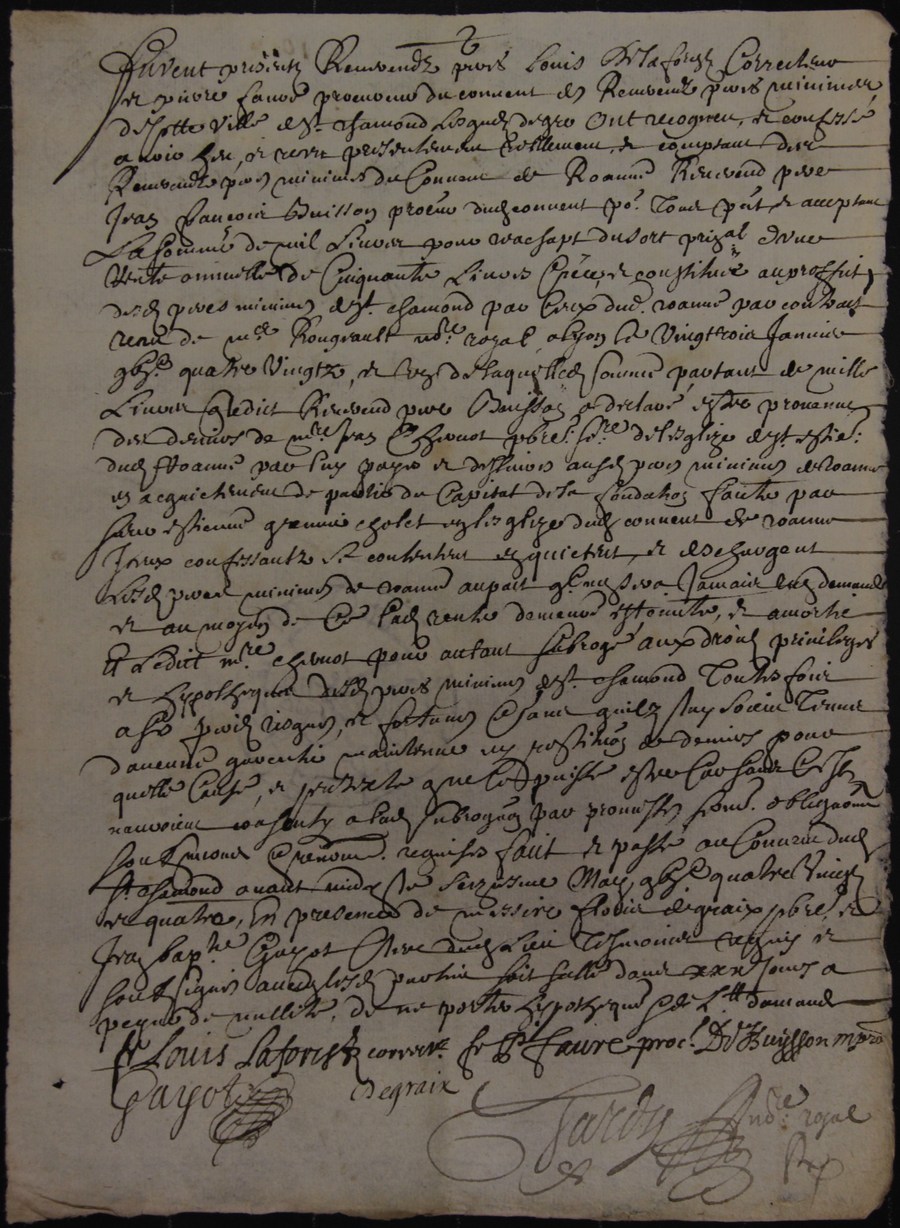 Furent presents Reverendz peres Louis De la forest Correcteur
et pierre faure procureur du convent des Reverendz peres minimes
de cette Ville de St. chamond Lesquels de gre Ont recogneu, et confessé
avoir heu, et receu presentement reellement et comptant des
Reverendz peres minimes du Convent de Roanne Reverend pere
Jean francois Buisson procur dud convent po. Tous pnt et acceptant
La somme de mil Livres pour reachapt du sort pnpal d'une
Rente annuelle de Cinquante Livres Créée, et constituée au proffit
desd peres minimes de St. chamond par Ceux dud. roanne par contract
receu de me Rougeault nore. royal a Lyon le Vingtrois Janvier
gbic quatre Vingtz, et de laquelle somme partant de mille
Livres Ledict Reverend pere Buisson a declaré estre provenue
des deniers de mre Jean Chevnot pbre. de l'esglize de st estie.
dud Roanne par luy payés et delivrés ausd peres minimes de Roanne
en acquictement de partie du Capital de la fondation faicte par
estienne cholet en l'esglize dud convent de roanne
Iceux confessantz se contentent en quictent, et deschargent
Lesd peres minimes de roanne au pact qu'il n'en sera Jamais rien demandé
et au moyen de Ce Lad rente demeure esteincte, et amortie
Et Ledict mre chevnot pour autant subrogé aux droictz privileges
et hypotheques desd peres minimes de St. chamond Touttes fois
a ses perilz risques, et fortunes Et sans quilz Luy soient Tenus
d'aucune garentie maintenue ny restitution de deniers pour
quelle Cause, et pretexte que Ce puisse estre Car sans Ce Ilz
n'auroient consenty a lad subrogation par promesses serm. obligaons
soubmissions renonc. requises fait et passé au Convent dud
St. chamond avant midy Le seiziesme May gbic quatre Vingtz
et quatre, En presence de messire Degraix pbre. et
Jean bapte Gayot Clerc dud Lieu Tesmoins requis et
soubsignes avec lesd parties soit scellé dans xxx Jours a
peyne de nullité, de ne porter hypotheque
fr Louis Laforest correctr. fr Pr. faure proc. Buysson
Gayot Degraix
Tardy nore. royal